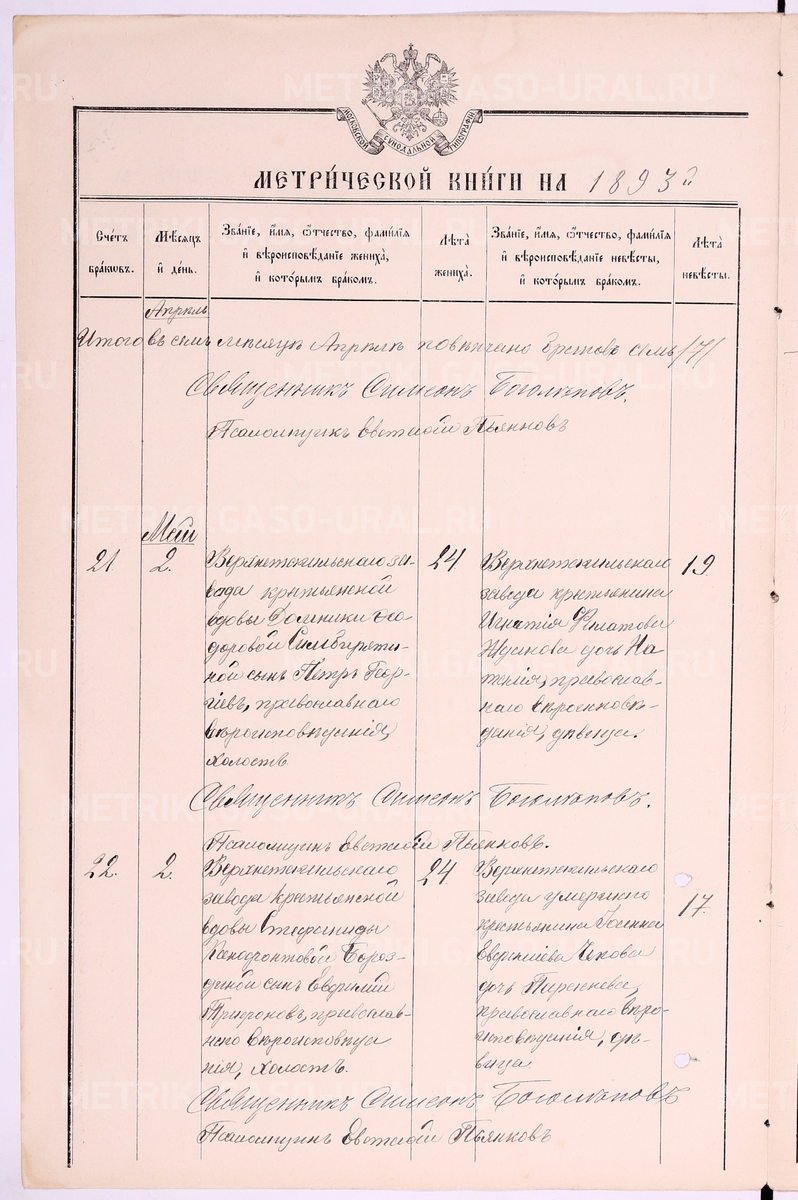 МОСКОВСКОЙ СѴНОДАЛЬНОЙ ТИПОГРАФІИ
МЕТРИ́ЧЕСКОЙ КНИ́ГИ НА 1893 й
Сче́тъ бра́кѡвъ.
Мѣ́сѧцъ и҆ де́нь.
Зва́нїе, и҆́мѧ, ѻ҆́тчество, фами́лїѧ и҆ вѣроисповѣ́данїе жениха̀, и҆ кото́рымъ бра́комъ.
Лѣ́та жениха̀.
Зва́нїе, и҆́мѧ, ѻ҆́тчество, фами́лїѧ и҆ вѣроисповѣ́данїе невѣ́сты, и҆ кото́рымъ бра́комъ.
Лѣ́та невѣ́сты.
Апрѣль
Итого въ семъ мѣсяцѣ Апрѣлѣ повѣнчано браковъ семь /7/
Священникъ Симеонъ Боголѣповъ.
Псаломщикъ Евгеній Пьянковъ
Май
21
2.
Верхнетагильскаго за-
вода крестьянской
вдовы Домники Фео-
доровой Симбиряти-
ной сынъ Петръ Геор-
гіевъ, православнаго
вѣроисповѣданія,
холостъ
24
Верхнетагильскаго
завода крестьянина
Игнатія Филатова
дочь
православ-
наго вѣроисповѣ-
данія, дѣвица.
19
Священникъ Симеонъ Боголѣповъ.
Псаломщикъ Евгеній Пьянковъ.
22.
2.
Верхнетагильскаго
завода крестьянской
вдовы Стефаниды
Ксенофонтовой Бороз-
диной сынъ Евфимій
Трифоновъ, православ-
наго вѣроисповѣда
нія, холостъ.
24
Верхнетагильскаго
завода умершаго
крестьянина
дочь Параскева,
православнаго вѣро-
исповѣданія, дѣ-
вица
17.
Священникъ Симеонъ Боголѣповъ
Псаломщикъ Евгеній Пьянковъ
METRIKI.GASO-URAL.RU